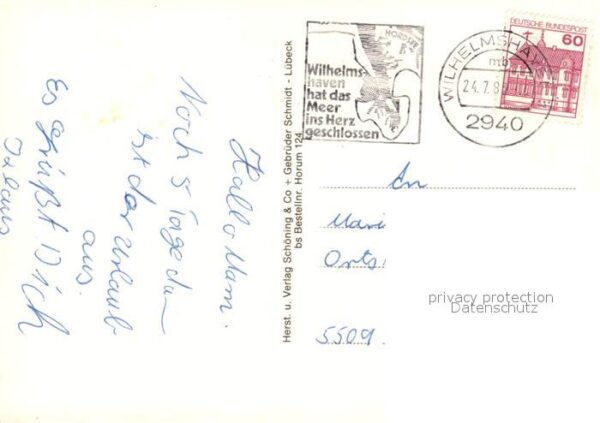 Hallo Mam.
Noch 5 Tage dan
ist der Urlaub
aus.
Es grüßt Dich
Herst. u. Verlag Schöning & Co + Gebrüder Schmidt - Lübeck
bs Bestellnr. Horum 124
NORDSEE
Wilhelms-
haven
hat das
Meer
ins Herz
geschlossen
WILHELMSHA
mb
24.7.8
2940
DEUTSCHE BUNDESPOST
60
An
Mari
Orts
5509
privacy protection
Datenschutz